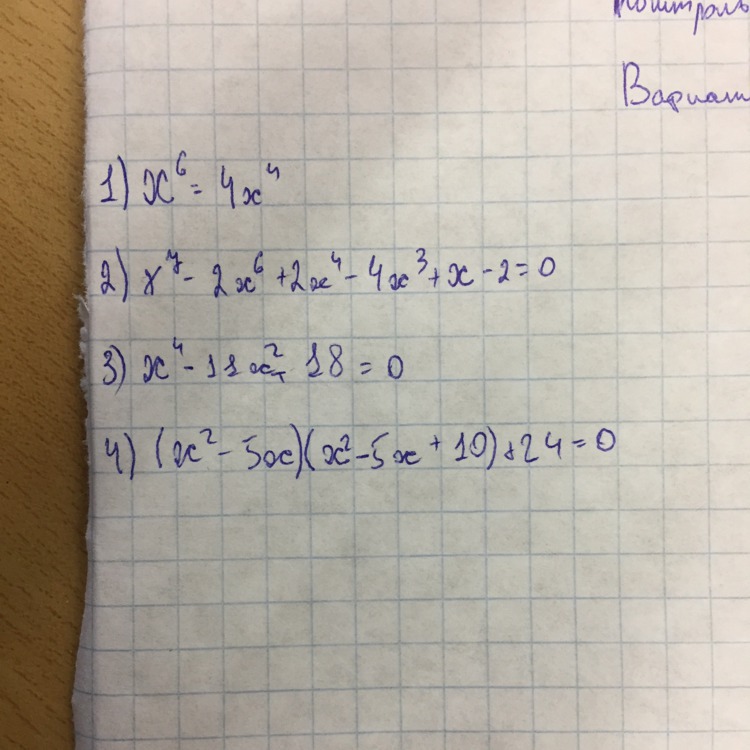 Контроль
Вариант
1) x⁶ = 4x⁴
2) x⁷ - 2x⁶ + 2x⁴ - 4x³ + x - 2 = 0
3) x⁴ - 11x² + 18 = 0
4) (x² - 5x)(x² - 5x + 10) + 24 = 0